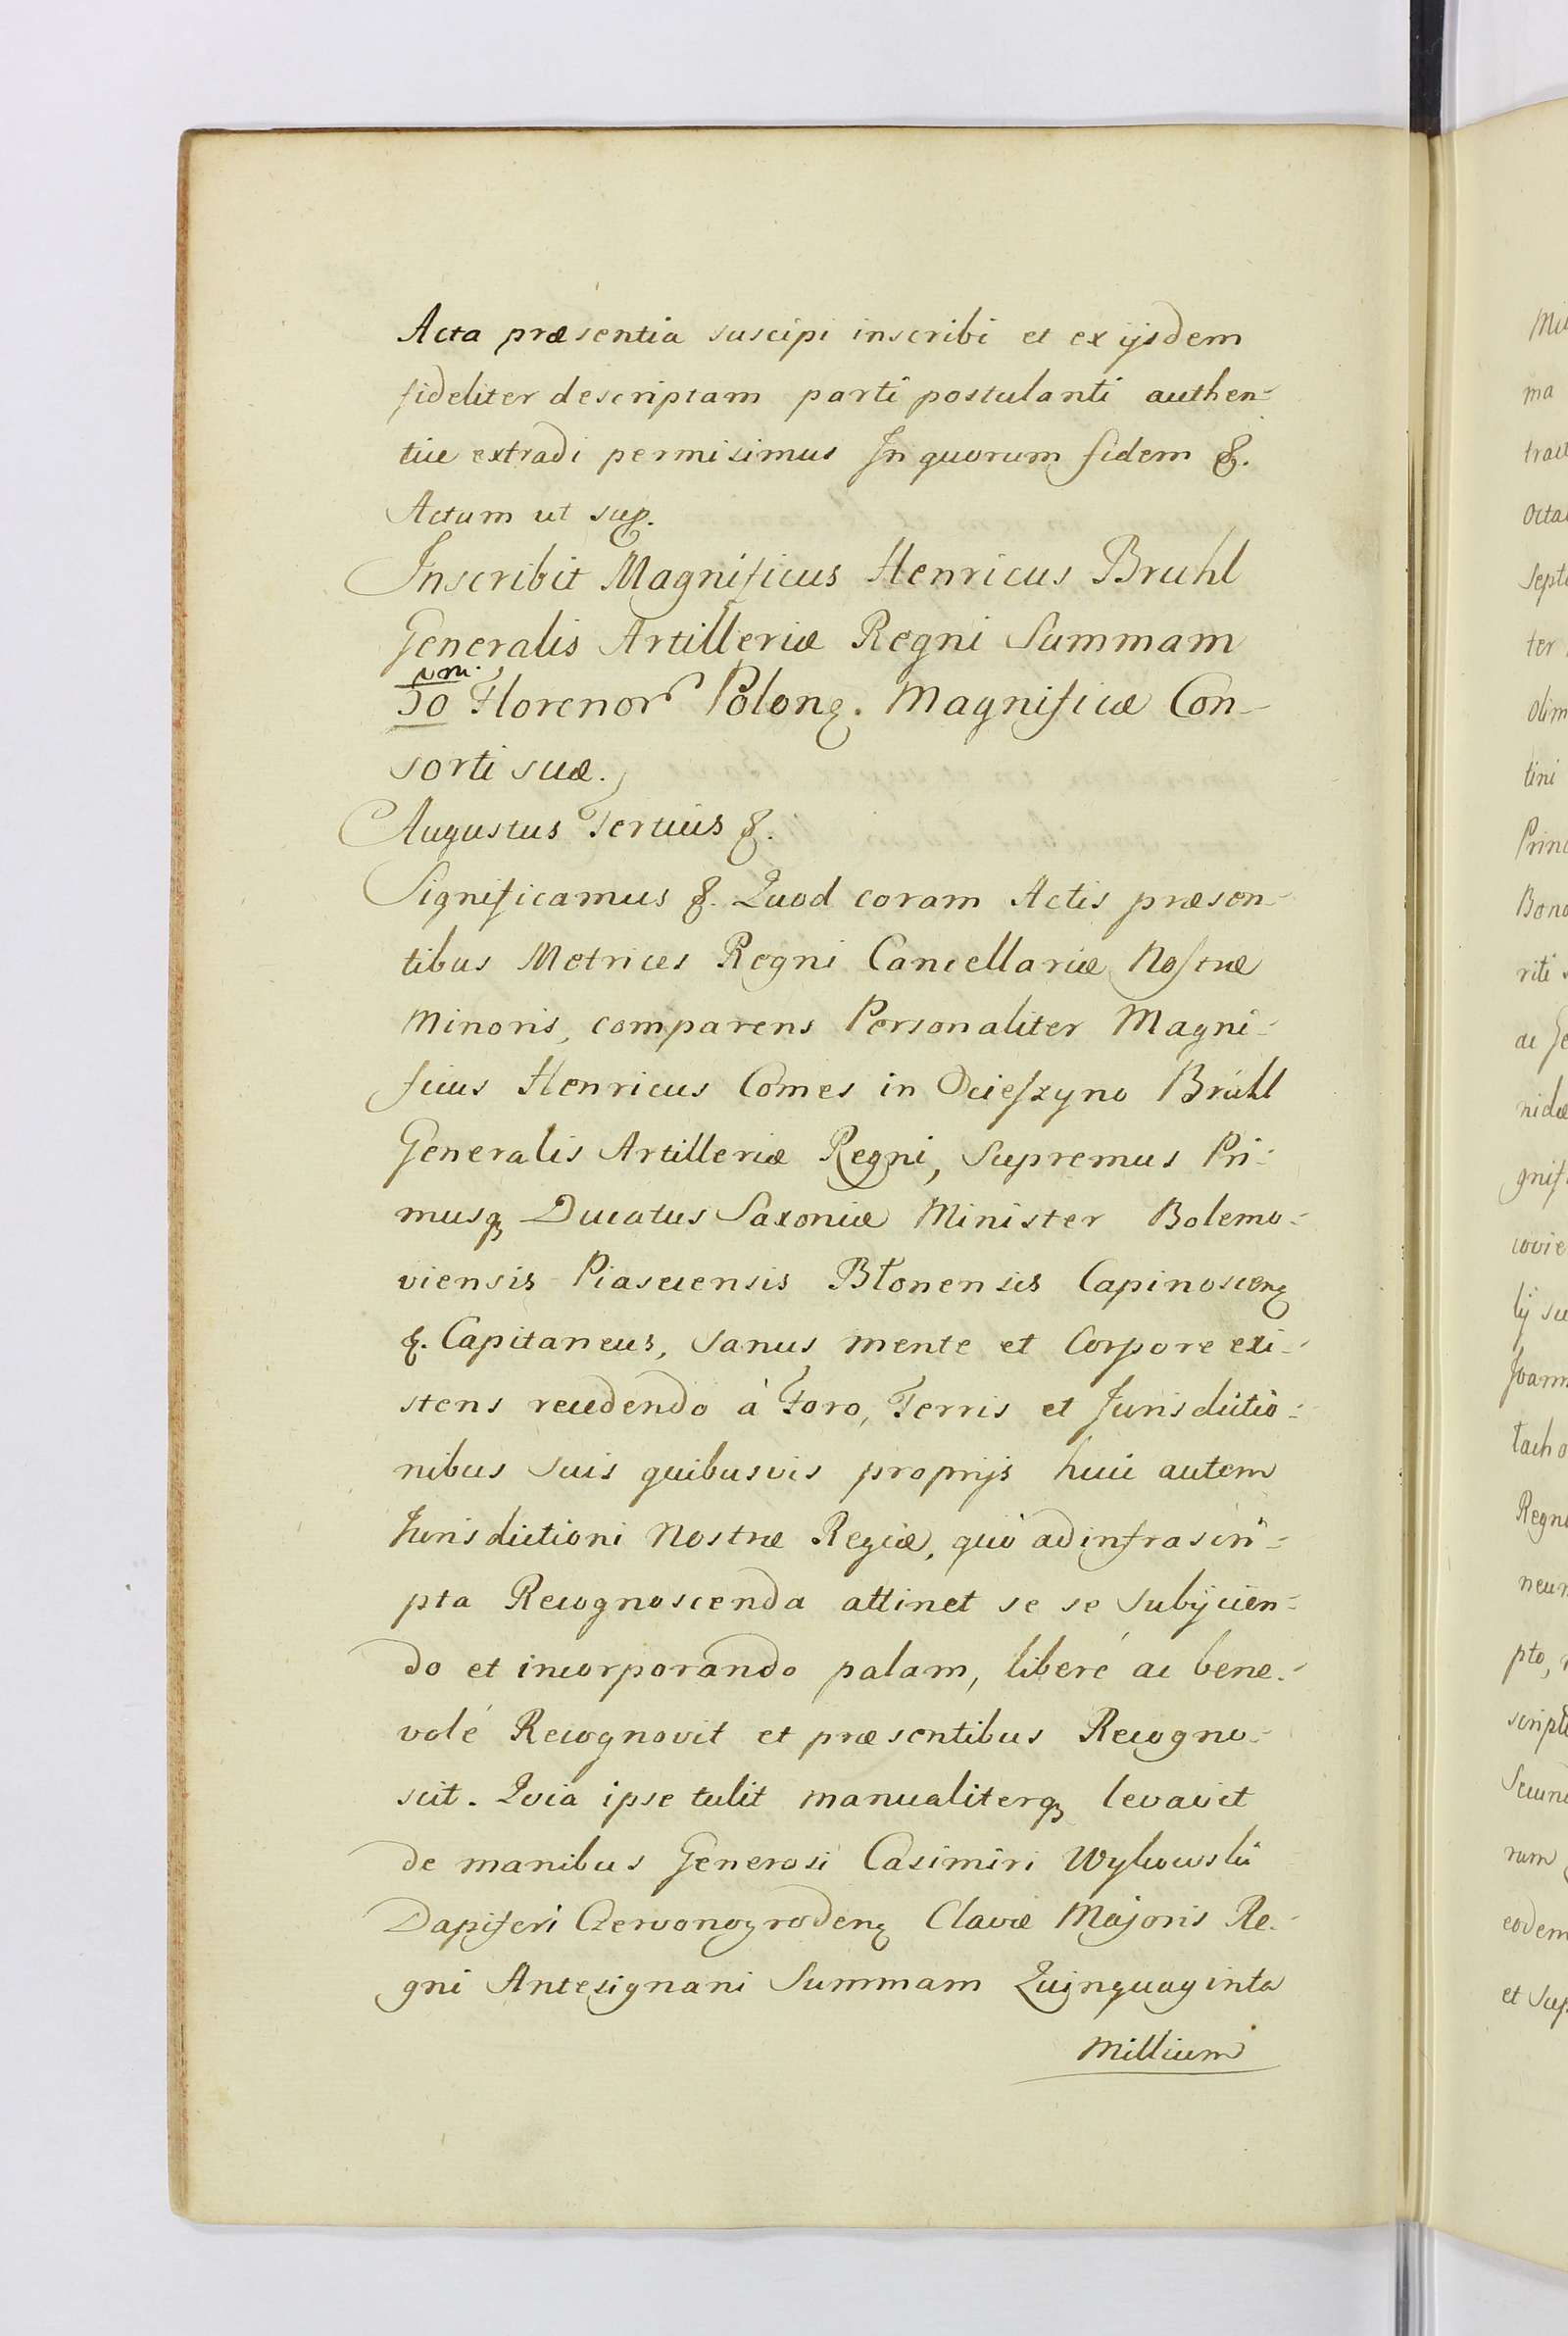 Acta præsentia suscipi inscribi et ex ijsdem
fideliter descriptam parti postulanti authen-
tice extradi permisimus In quorum fidem &.
Actum ut sup.
Inscribit Magnificus Henricus Bruhl
Generalis Artilleriæ Regni Summam
50 Florenor Polonę. Magnificæ Con-
sorti suæ.
Augustus Tertius &.
Significamus &. Quod coram Actis præsen-
tibus Metrices Regni Cancellariæ Nostræ
Minoris, comparens Personaliter Magni-
ficus Henricus Comes in Ocieszyno Brühl
Generalis Artilleriæ Regni, Supremus Pri-
musq Ducatus Saxoniæ Minister Bolemo-
viensis Piasecensis Błonensis Capinoscenę
&. Capitaneus, Sanus mente et Corpore exi-
stens recedendo à Foro, Terris et Jurisdictio-
nibus suis quibusvis proprijs huic autem
Jurisdictioni Nostræ Regiæ, quò ad infrascri-
pta Recognoscenda attinet se se subijcien-
do et incorporando palam, liberé ac bene-
volé Recognovit et præsentibus Recogno-
scit. Quia ipse tulit manualiterq levavit
de manibus Generosi Casimiri Wyhowskii
Dapiferi Czervonogrodenę Clavæ Majoris Re-
gni Antesignani Summam Quinquaginta
Millium
Octa
ma
Septe
ter
olim
tini
Princ
Bono
riti
ac Ge
nidæ
gnifi
covie
lij su
Joann
tacho
Regni
neum
pto,
scripto
Secund
rum
eodem
et Sup